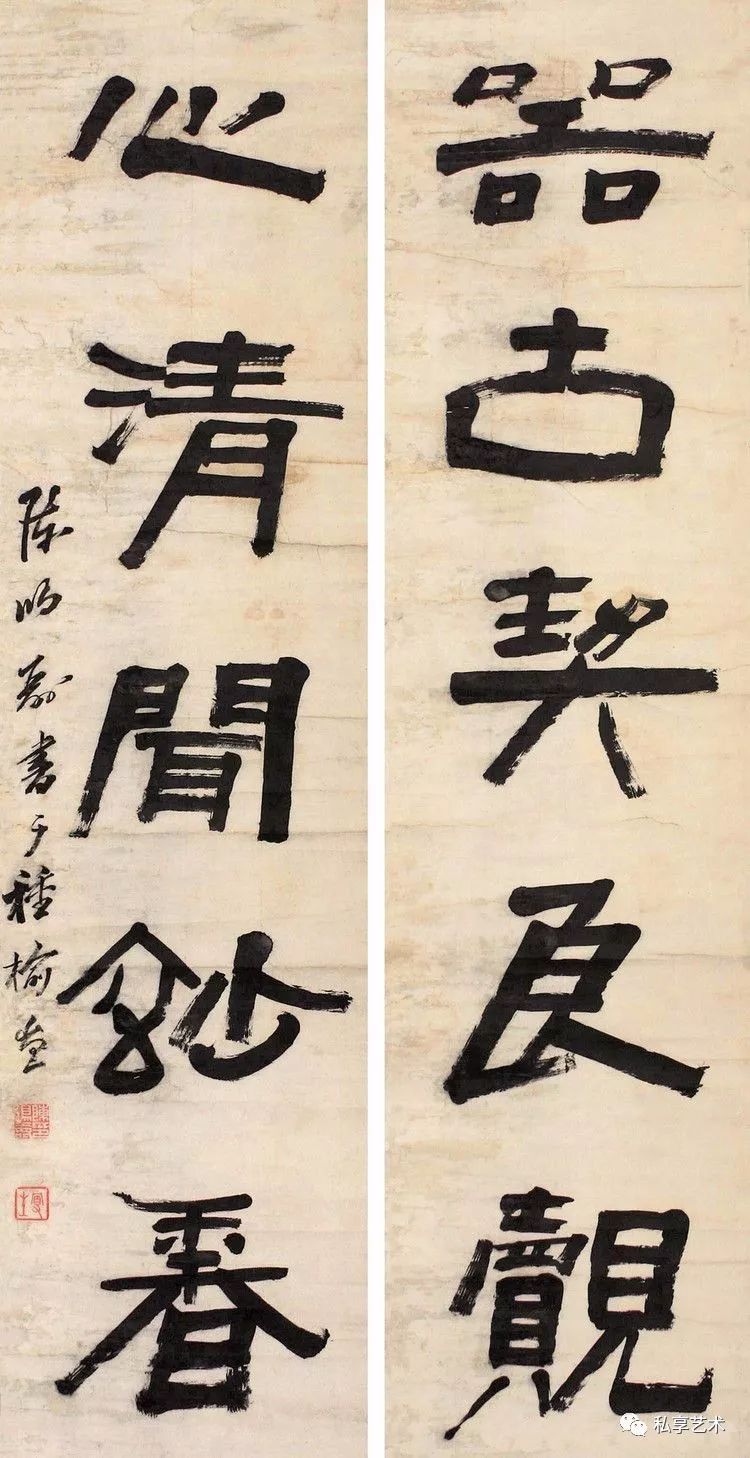 器古契良覿
心清聞玅香
陳鴻壽書于種榆
私享艺术